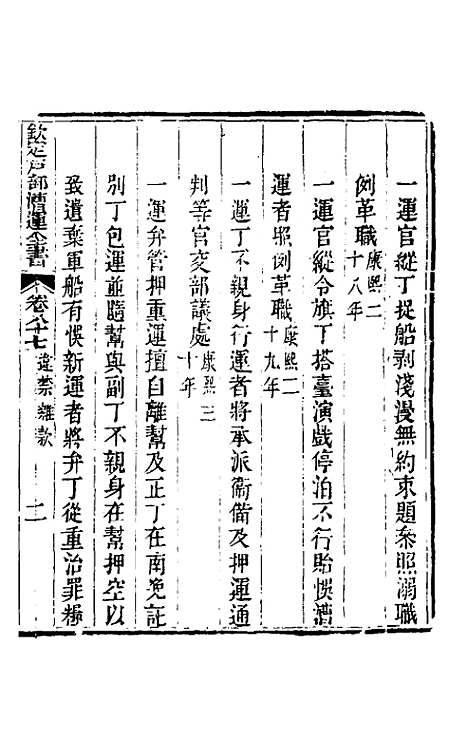 一運官縱丁捉船剥淺漫無約束題叅照溺職
例革職康熙二十八年
一運官縱令旗丁搭臺演戲停泊不行貽悞漕
運者照例革職康熙二十九年
一運丁不親身行運者將承派衞備及押運通
判等官交部議處康熙三十年
一運弁管押重運擅自離幫及正丁在南免託
別丁包運並隨幫與副丁不親身在幫押空以
致遺棄軍船有悞新運者將弁丁從重治罪糧
欽定戶部漕運全書
卷八十七
違禁雜款
二